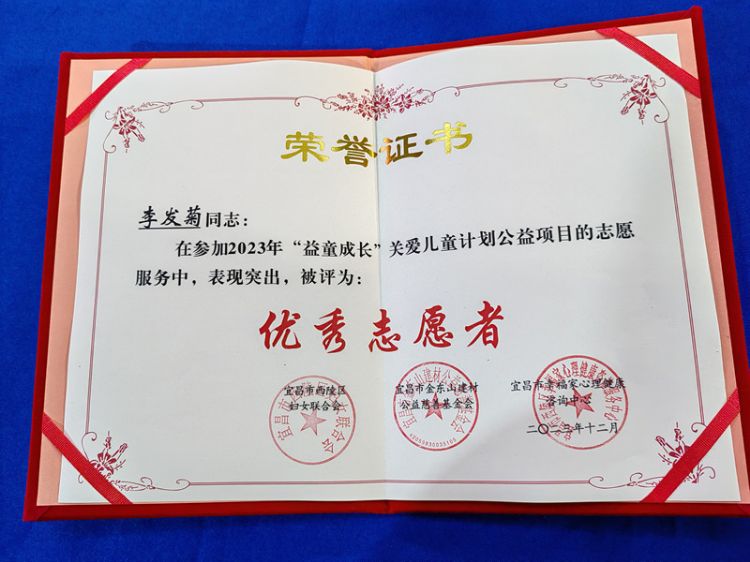 荣誉证书
李发菊同志：
在参加2023年“益童成长”关爱儿童计划公益项目的志愿
服务中，表现突出，被评为：
优秀志愿者
宜昌市西陵区
妇女联合会
宜昌市金东山建材
公益慈善基金会
宜昌市幸福家心理健康
咨询中心
二〇二三年十二月